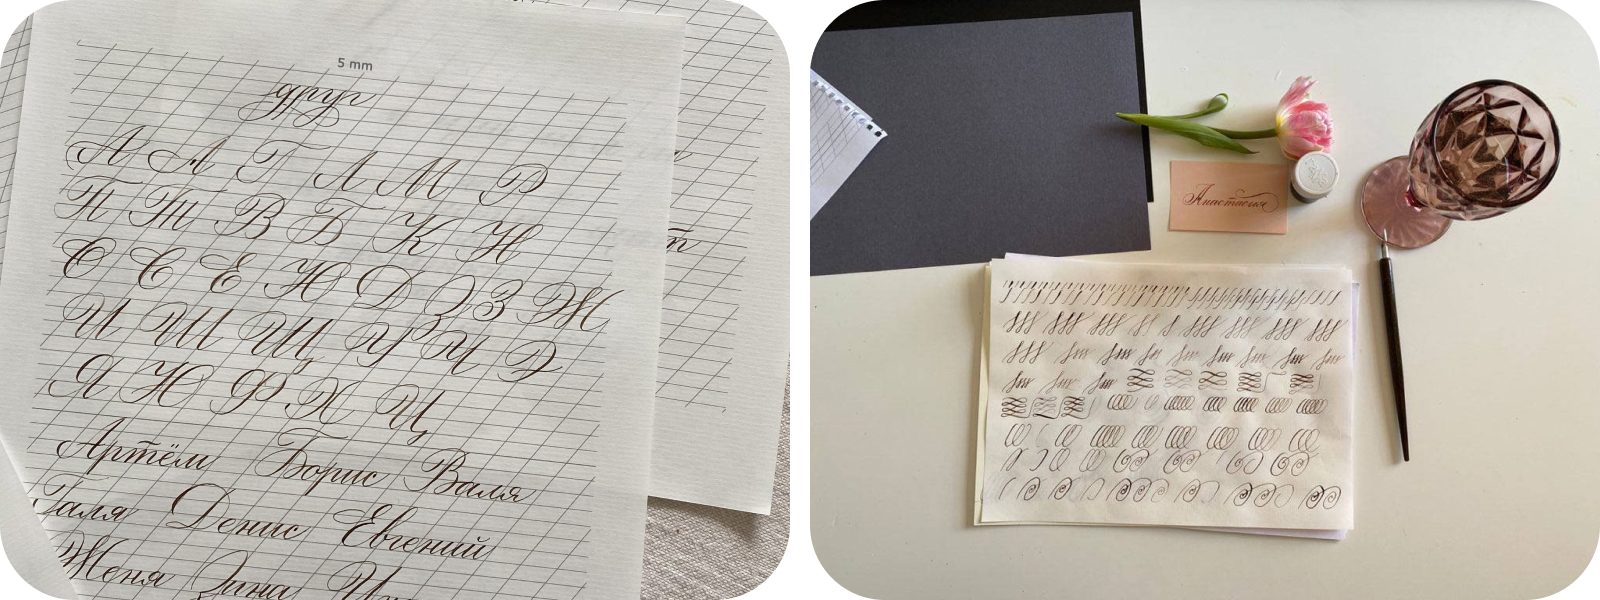 5 mm
друг
А Л Г Л М Р
П Т В Б К Н
О С Е Ю Д З З Ж
И Ш Щ У Ч Э
Я Ю Ф Х Ц
Артём Борис Валя
Галя Денис Евгений
Женя Зина
Анастасия